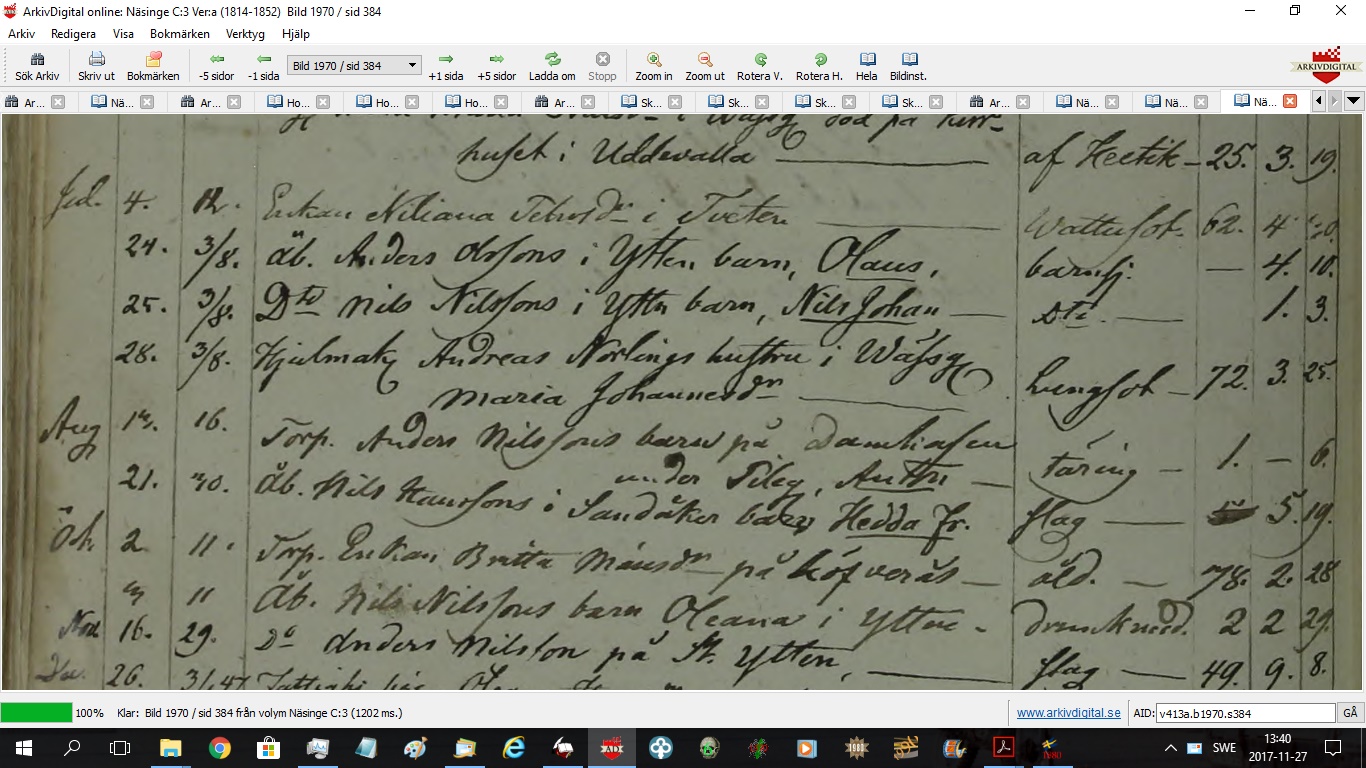 ArkivDigital online: Näsinge C:3 Ver:a (1814-1852) Bild 1970 / sid 384
Arkiv Redigera Visa Bokmärken Verktyg Hjälp
Sök Arkiv Skriv ut Bokmärken -5 sidor -1 sida Bild 1970 / sid 384 +1 sida +5 sidor Ladda om Stopp Zoom in Zoom ut Rotera V. Rotera H. Hela Bildinst. ARKIVDIGITAL
Ar... Nä... Ar... Ho... Ho... Ho... Ar... Sk... Sk... Sk... Sk... Ar... Nä... Nä... Nä...
död på
huset i Uddevalla af Hectik 25. 3. 19.
4. 12. Enkan i Tveten 62. 4
24. 3/8. åb. Anders Olssons i Ytten barn, Olaus, barnsj. — 4. 10.
25. 3/8. Dto Nils Nilssons i Yttn barn, Nils Johan — Dto — 1. 3.
28. 3/8. Hjulmak Andreas Norlings hustru i lungsot — 72. 3. 25.
Maria Johannesdr
Aug 16. Torp. Anders Nilssons barn på täring — 1. — 6.
under
21. 30. åb. Nils Hanssons i Sandåker barn Hedda Fr. slag — 5. 19.
2 11. Torp. Enkan Britta Månsdr på åld. — 78. 2. 28
11 åb. Nils Nilssons barn Oleana i Ytten - 2 2 29.
Nov. 16. 29. Do Anders Nilsson på St. Ytten, slag — 49. 9. 8.
26.
100% Klar: Bild 1970 / sid 384 från volym Näsinge C:3 (1202 ms.) www.arkivdigital.se AID: v413a.b1970.s384 GÅ
SWE 13:40
2017-11-27